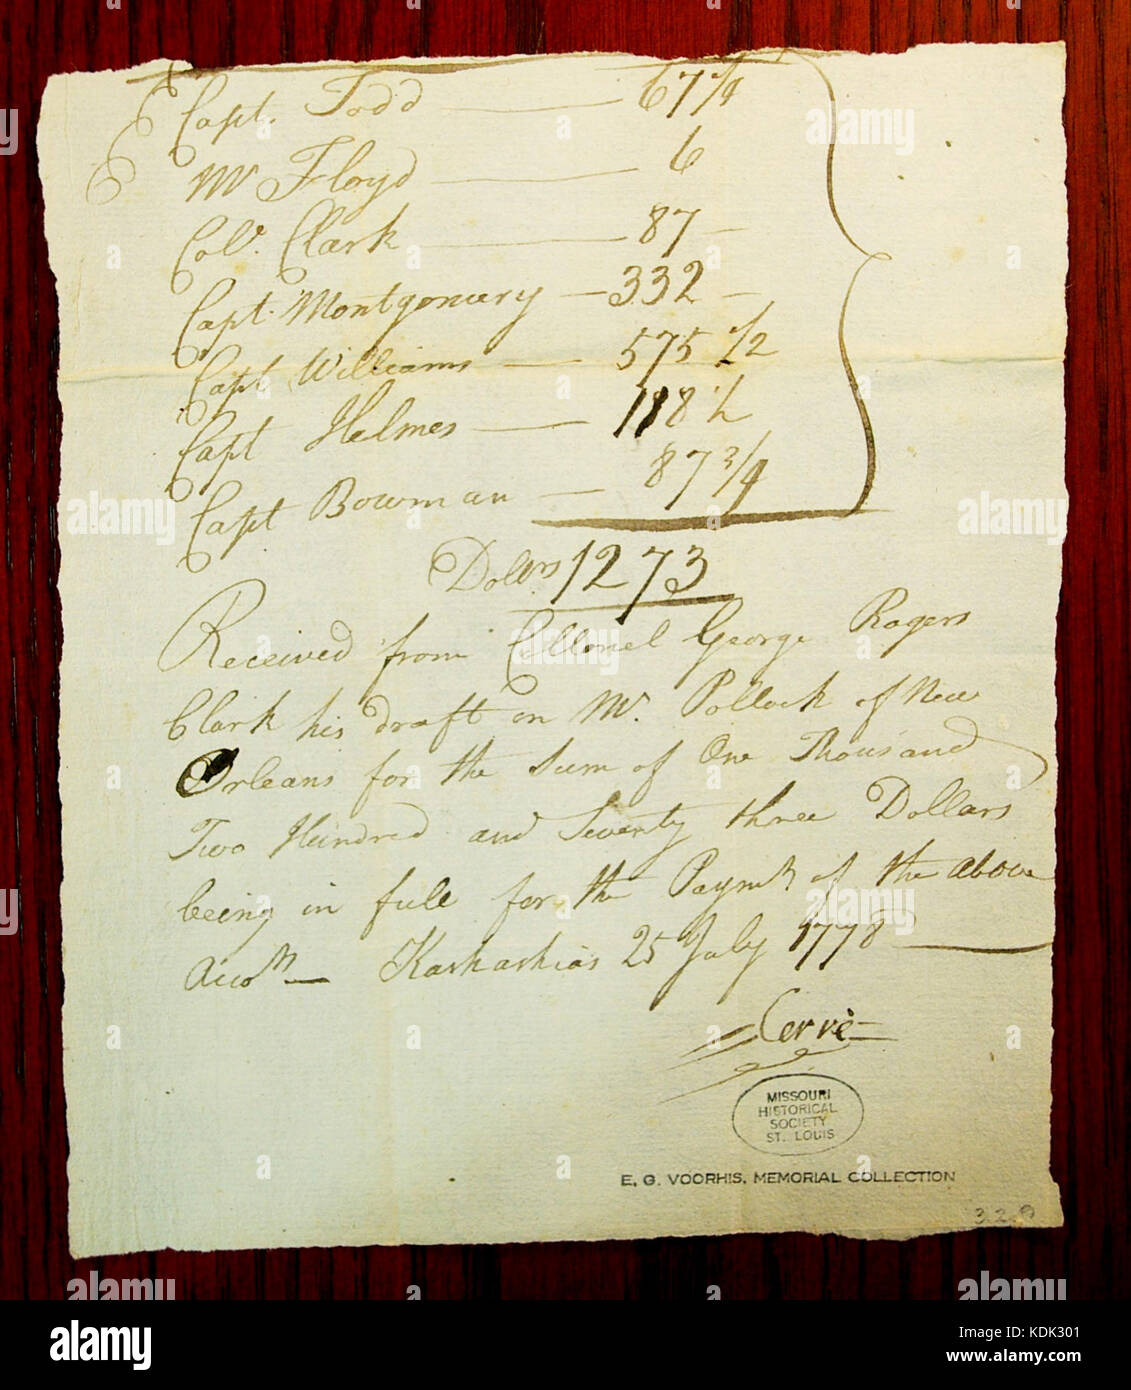 Capt. Todd — 67 1/4
Mr Floyd — 6
Col. Clark — 87 —
Capt. Montgomery — 332 —
Capt Williams — 575 1/2
Capt Helmes — 118 1/2
Capt Bowman — 87 3/4
Dollrs 1273
Received from Collonel George Rogers
Clark his draft on Mr. Pollock of New
Orleans for the Sum of One Thousand
Two Hundred and Seventy three Dollars
being in full for the Paymt of the above
Accots — Kaskaskias 25 July 1778 —
Cerrè
MISSOURI
HISTORICAL
SOCIETY
ST. LOUIS
E. G. VOORHIS, MEMORIAL COLLECTION
alamy stock photo
alamy
Image ID: KDK301
www.alamy.com